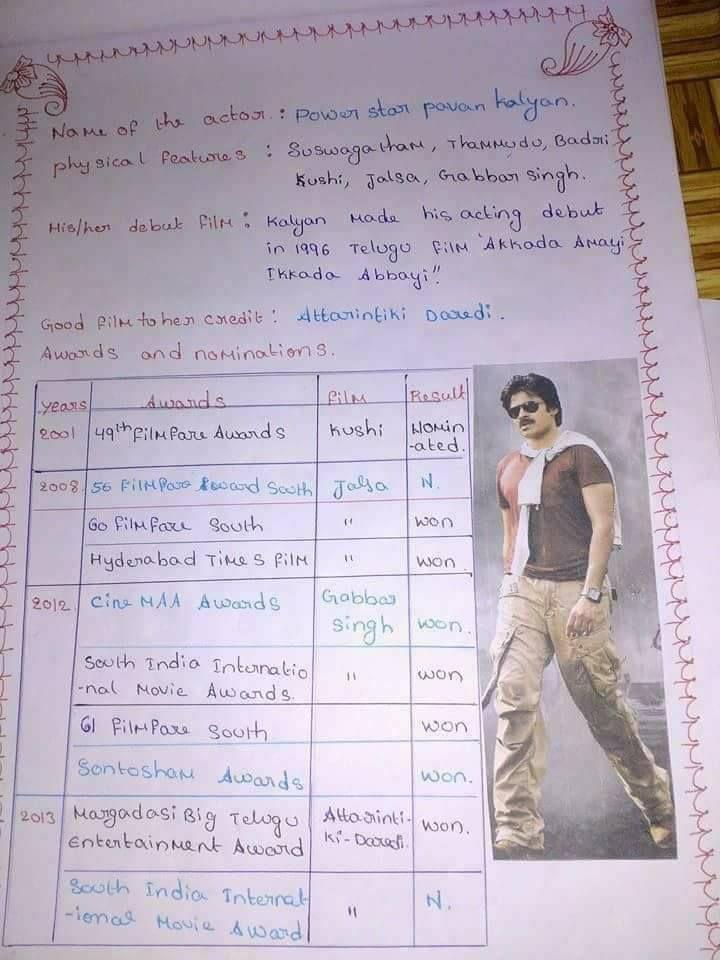 Name of the actor : Power star pavan kalyan.
physical features : Suswagatham, Thammudu, Badri
Kushi, Jalsa, Gabbar singh.
His/her debut film : Kalyan Made his acting debut
in 1996 Telugu film 'Akkada Amayi
Ikkada Abbayi!!
Good film to her credit : Attarintiki Daredi.
Awards and nominations.
years Awards film Result
2001 49th filmfare Awards Kushi Nomin
-ated.
2008. 56 filmfare Award South Jalsa N.
60 filmfare South " won
Hyderabad Times film " won.
2012. Cine MAA Awards Gabbar
singh won.
South India Internatio
-nal Movie Awards. " won
61 filmfare South won
Santosham Awards won.
2013 Margadasi Big Telugu Attarinti-
Entertainment Award ki-Daredi. won.
South India Internat
-ional Movie Award " N.